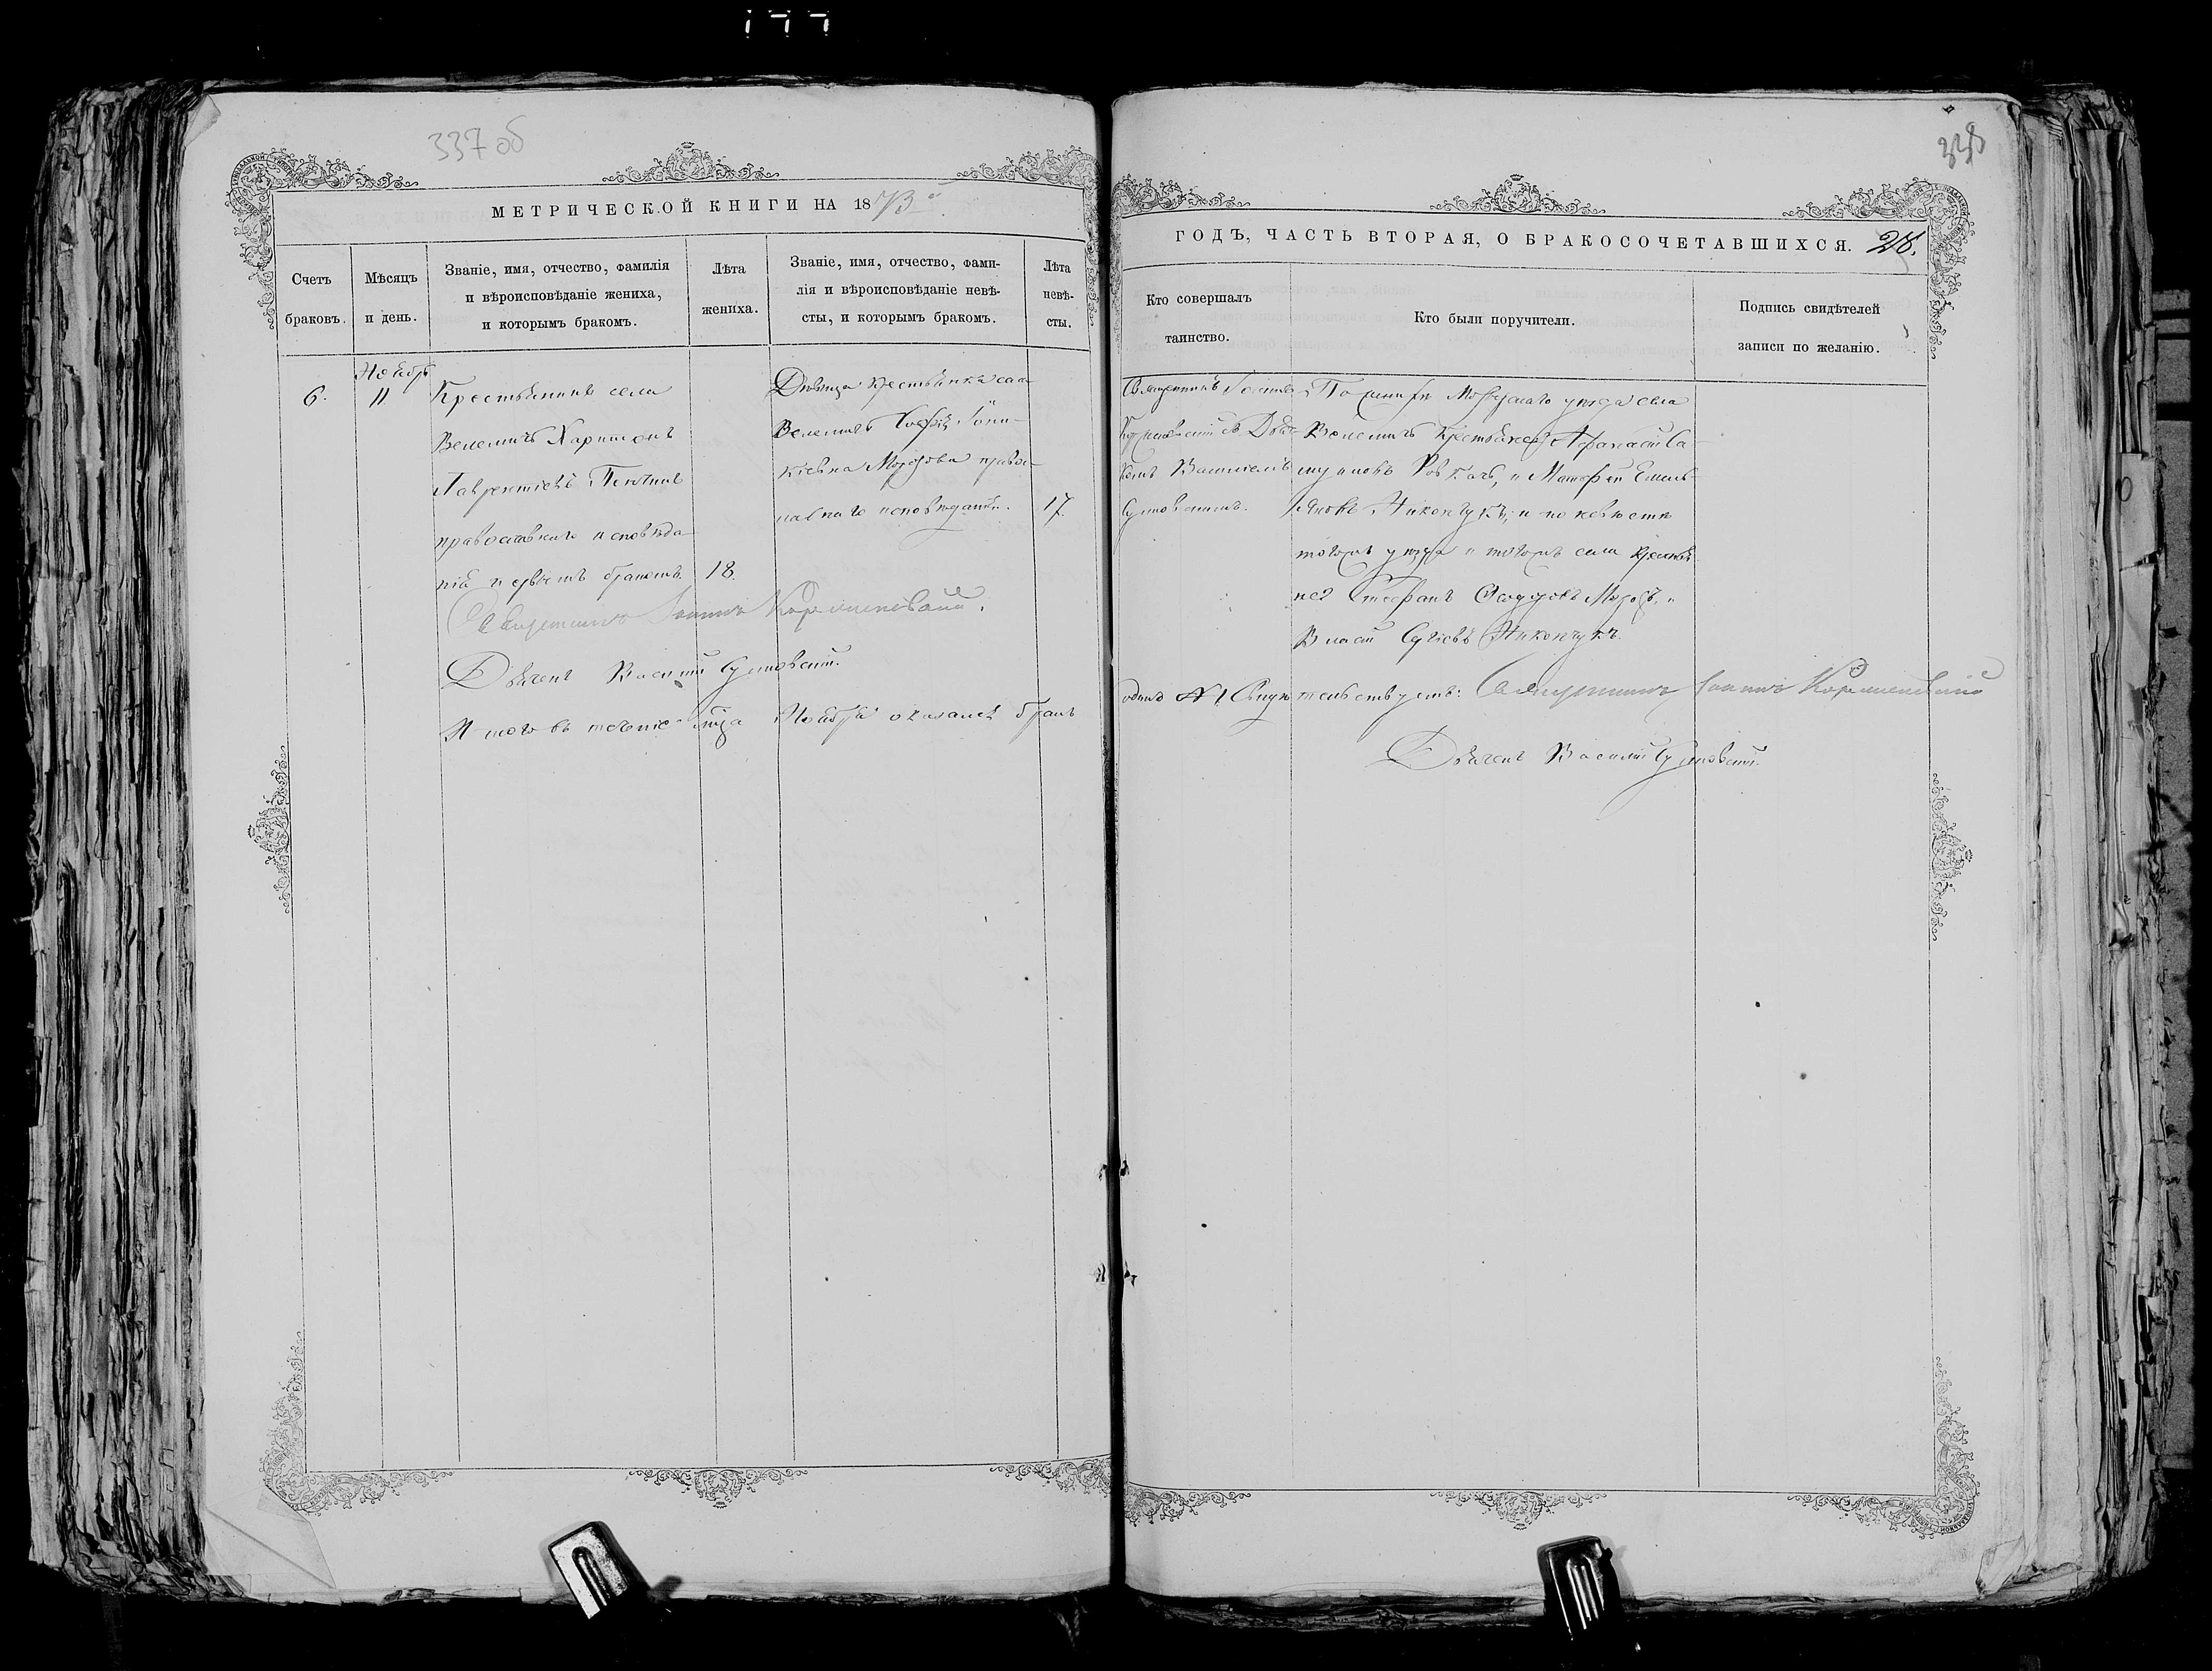 337 об
МЕТРИЧЕСКОЙ КНИГИ НА 1873й
Счетъ браковъ.
Мѣсяцъ и день.
Званіе, имя, отчество, фамилія
и вѣроисповѣданіе жениха,
и которымъ бракомъ.
Лѣта жениха.
Званіе, имя, отчество, фами-
лія и вѣроисповѣданіе невѣ-
сты, и которымъ бракомъ.
Лѣта невѣ-
сты.
6.
Ноябрь
11
Крестьянинъ села
Велемичъ Харитонъ
Лаврентіевъ
православнаго исповѣда-
нія первымъ бракомъ.
18.
Дѣвица крестьянка села
Велемичъ
Морозова правос-
лавнаго исповѣданія.
17.
Священникъ Іоаннъ
Дьяченъ Василій
Итого въ теченіе мѣца Ноября оказался бракъ
338
ГОДЪ, ЧАСТЬ ВТОРАЯ, О БРАКОСОЧЕТАВШИХСЯ.
28.
Кто совершалъ
таинство.
Кто были поручители.
Подпись свидѣтелей
записи по желанію.
Священникъ Іоаннъ
съ Дьяч-
комъ Василіемъ
По женихѣ Мозырскаго уѣзда села
Велемичъ крестьяне Афанасій Са-
муиловъ и Матфей Емель-
яновъ Никончукъ, и по невѣстѣ
тогожъ уѣзда и тогожъ села крестья-
не Стефанъ Морозъ, и
Власій Никончукъ.
одинъ №1 Свидѣтельствуетъ: Священникъ Іоаннъ
Дьяченъ Василій